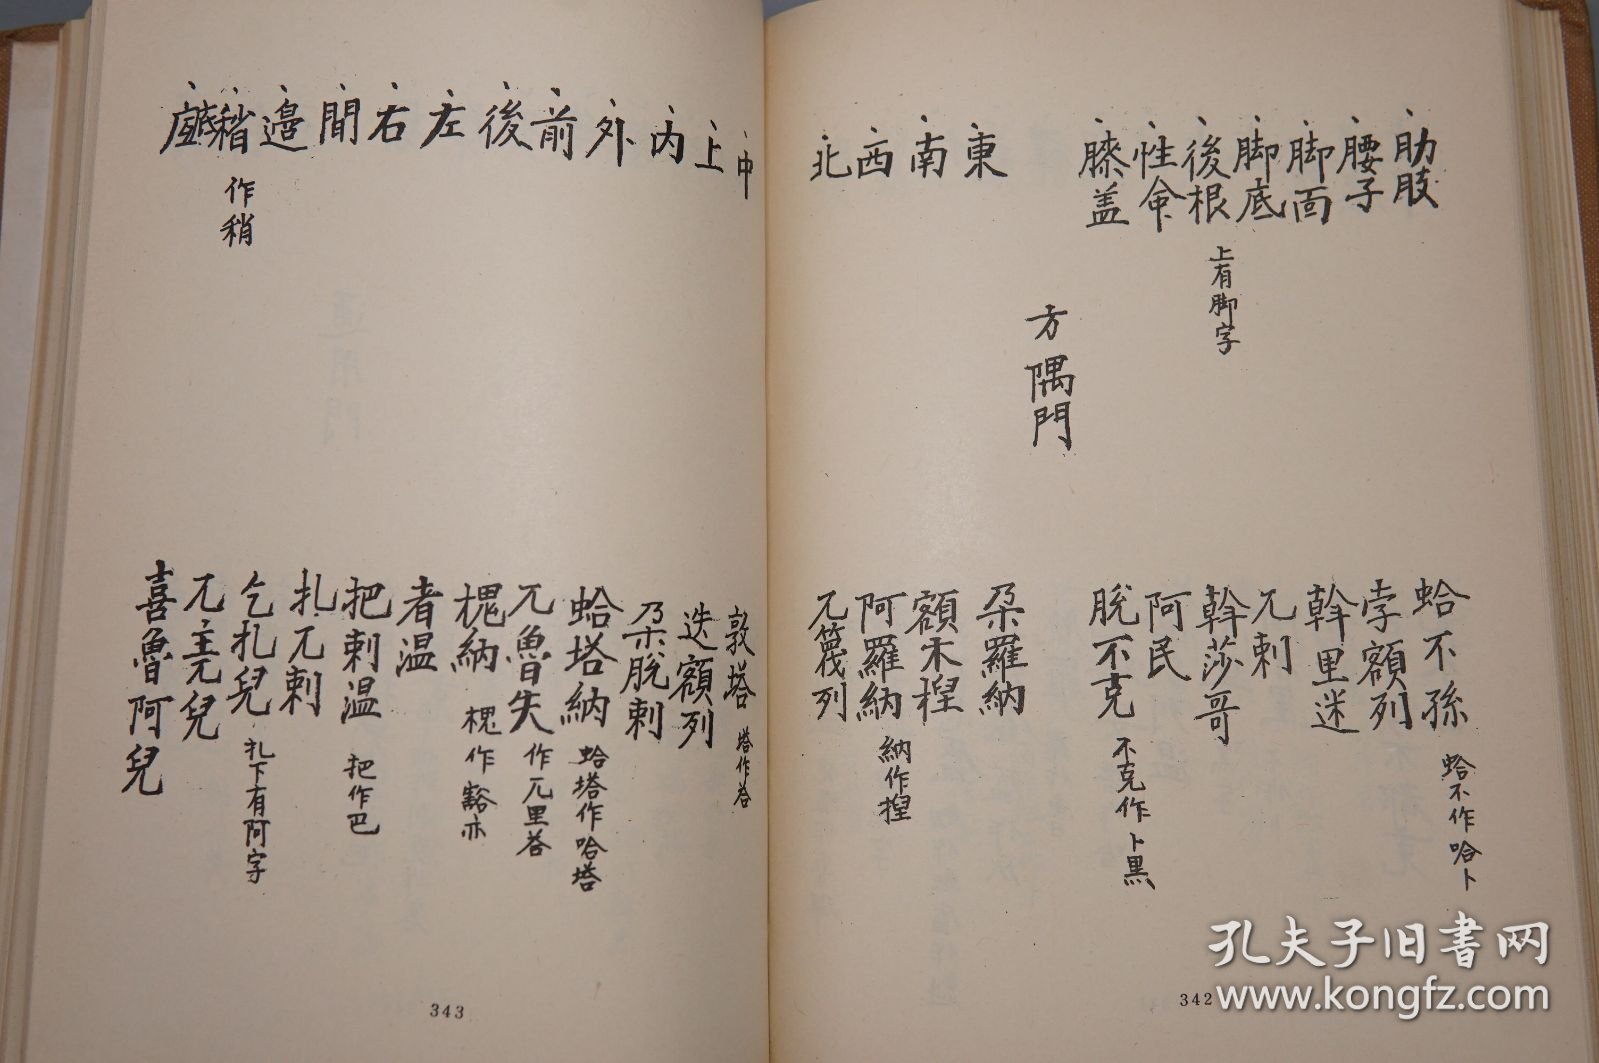 肋肢 蛤不孫 蛤不作哈卜
腰子 孛額列
脚面 斡里迷
脚底 兀剌
後根 上有脚字 斡莎哥
性命 阿民
膝盖 脫不克 不克作卜黑
方隅門
東 朶羅納
南 額木揑
西 阿羅納 納作揑
北 兀篾列
342
中 敦塔 塔作荅
上 迭額列
内 朶脫剌
外 蛤塔納 蛤塔作哈塔
前 兀魯失 作兀里荅
後 槐納 槐作豁亦
左 者温
右 把剌温 把作巴
間 扎兀剌
邉 乞扎兒 扎下有阿字
作稍 兀主兀兒
喜魯阿兒
343
孔夫子旧书网
www.kongfz.com